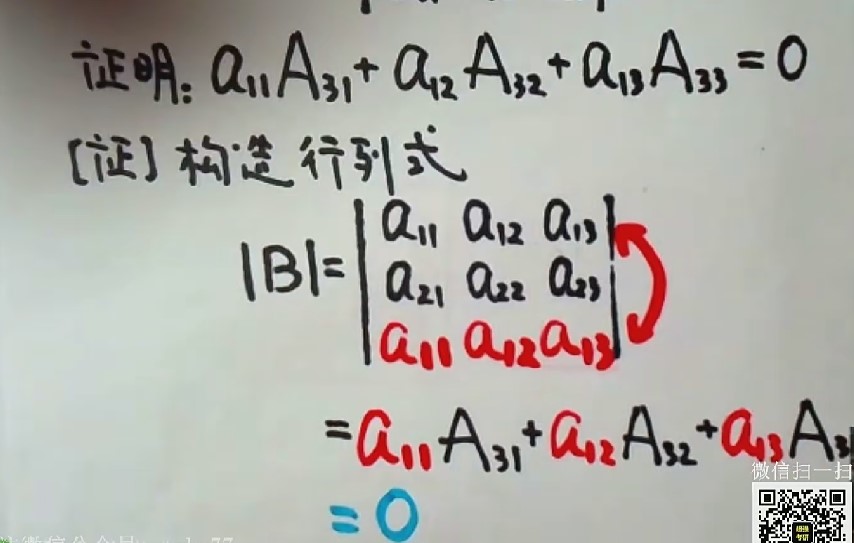 证明: a₁₁A₃₁+a₁₂A₃₂+a₁₃A₃₃=0
[证] 构造行列式
|B|=
a₁₁ a₁₂ a₁₃
a₂₁ a₂₂ a₂₃
a₁₁ a₁₂ a₁₃
=a₁₁A₃₁+a₁₂A₃₂+a₁₃A₃
微信扫一扫
=0